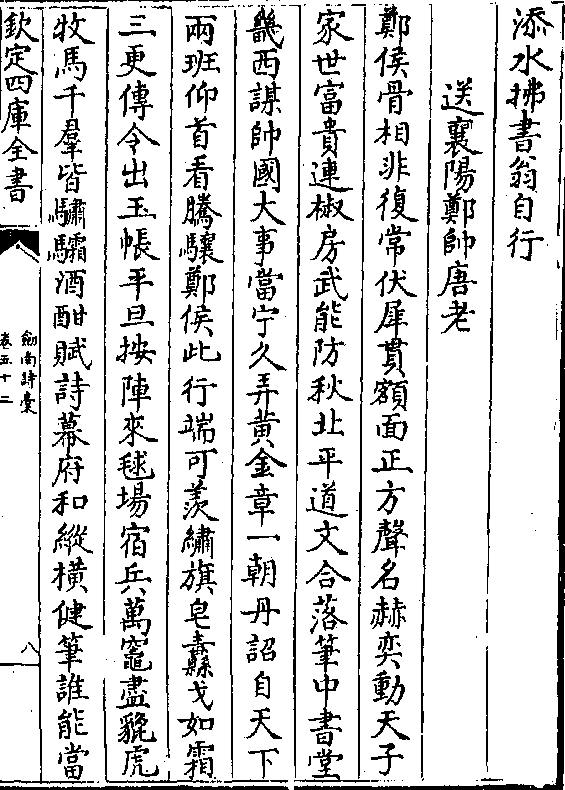 添水拂書翁自行
送襄陽鄭帥唐老
鄭侯骨相非復常伏犀貫額面正方聲名赫奕動天子
家世富貴連椒房武能防秋北平道文合落筆中書堂
畿西謀帥國大事當宁久弄黄金章一朝丹詔自天下
兩班仰首看騰驤鄭侯此行端可羨繡旗皂纛戈如霜
三更傳令出玉帳平旦按陣來毬場宿兵萬竈盡貔虎
牧馬千羣皆驌驦酒酣賦詩幕府和縱横健筆誰能當
欽定四庫全書
劒南詩稾
卷五十二
八